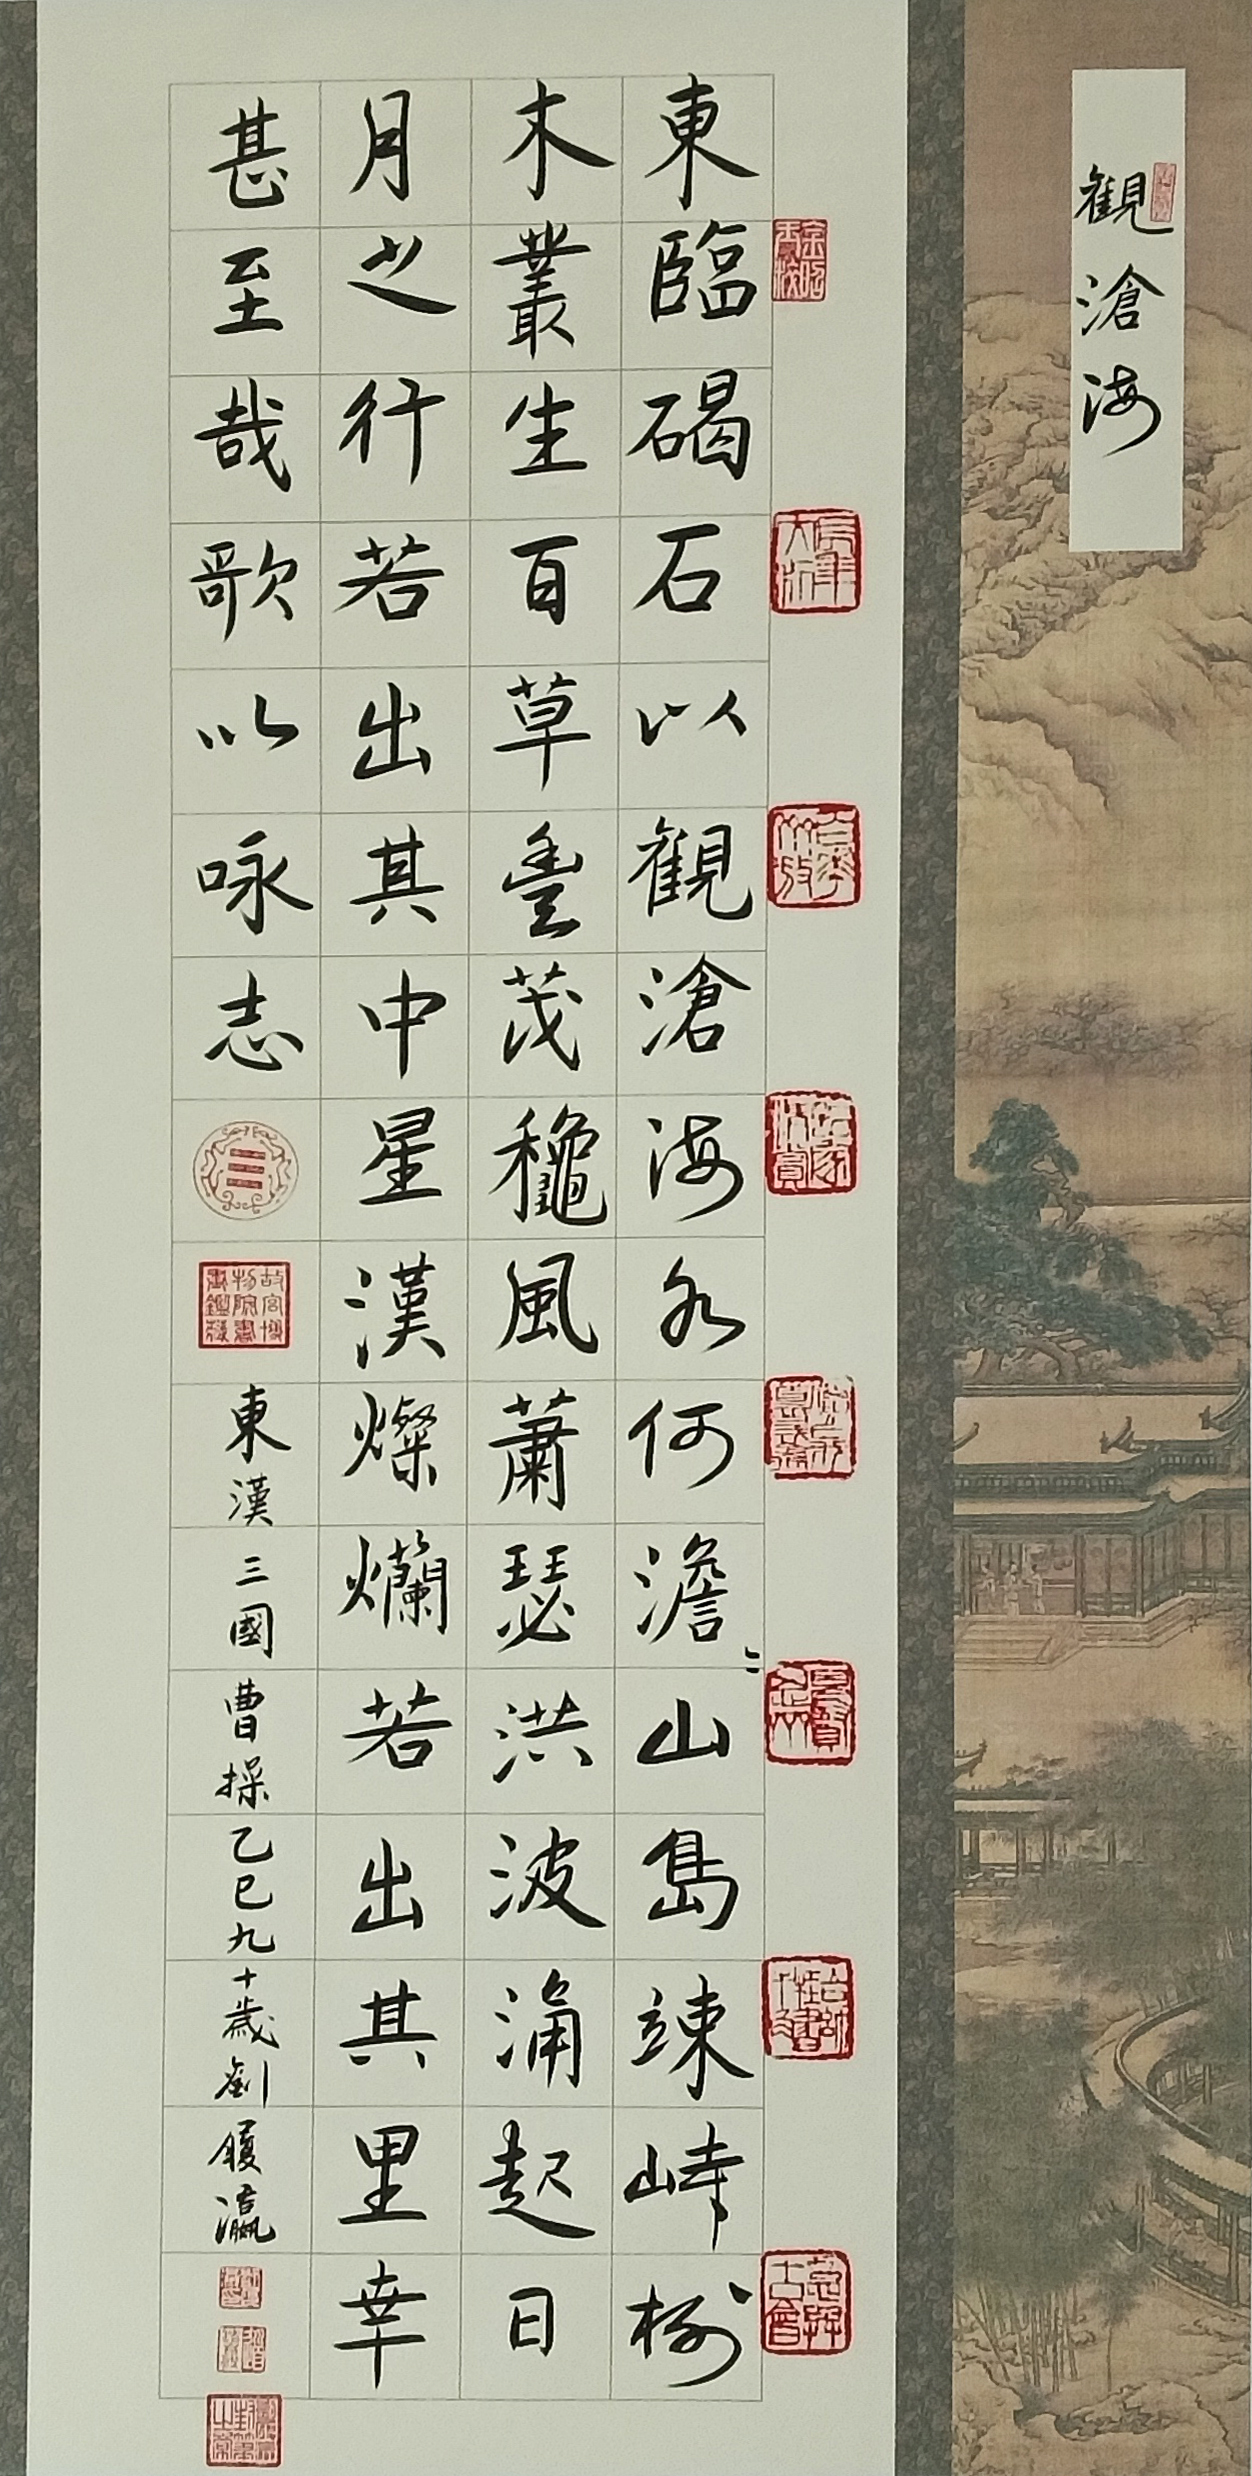 觀滄海
東臨碣石以觀滄海水何澹〻山島竦峙樹
木叢生百草豐茂穐風蕭瑟洪波涌起日
月之行若出其中星漢燦爛若出其里幸
甚至哉歌以咏志
東漢三國曹操乙巳九十歲劉履瀛
故宮博物院書畫鑑藏